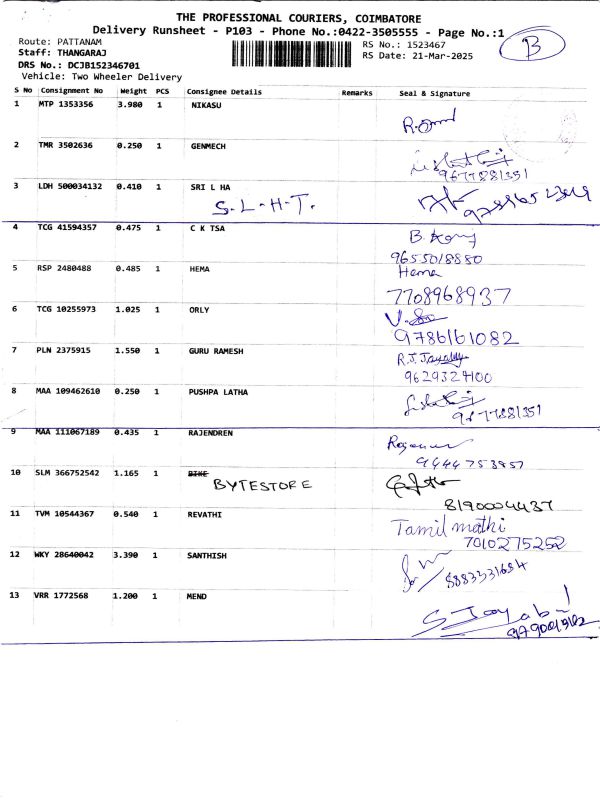 THE PROFESSIONAL COURIERS, COIMBATORE
Delivery Runsheet - P103 - Phone No.:0422-3505555 - Page No.:1
B
Route: PATTANAM
RS No.: 1523467
Staff: THANGARAJ
RS Date: 21-Mar-2025
DRS No.: DCJB152346701
Vehicle: Two Wheeler Delivery
S No Consignment No Weight PCS Consignee Details Remarks Seal & Signature
1 MTP 1353356 3.980 1 NIKASU
2 TMR 3502636 0.250 1 GENMECH
9677881351
3 LDH 500034132 0.410 1 SRI L HA
S-L-H-T.
4 TCG 41594357 0.475 1 C K TSA
9655018880
5 RSP 2480488 0.485 1 HEMA
Hema
7708968937
6 TCG 10255973 1.025 1 ORLY
9786161082
7 PLN 2375915 1.550 1 GURU RAMESH
9629327100
8 MAA 109462610 0.250 1 PUSHPA LATHA
9677881351
9 MAA 111067189 0.435 1 RAJENDREN
9444753957
10 SLM 366752542 1.165 1 BIKE
BYTESTORE
8190004437
11 TVM 10544367 0.540 1 REVATHI
Tamil mathi
7010275252
12 WKY 28640042 3.390 1 SANTHISH
8883331684
13 VRR 1772568 1.200 1 MEND